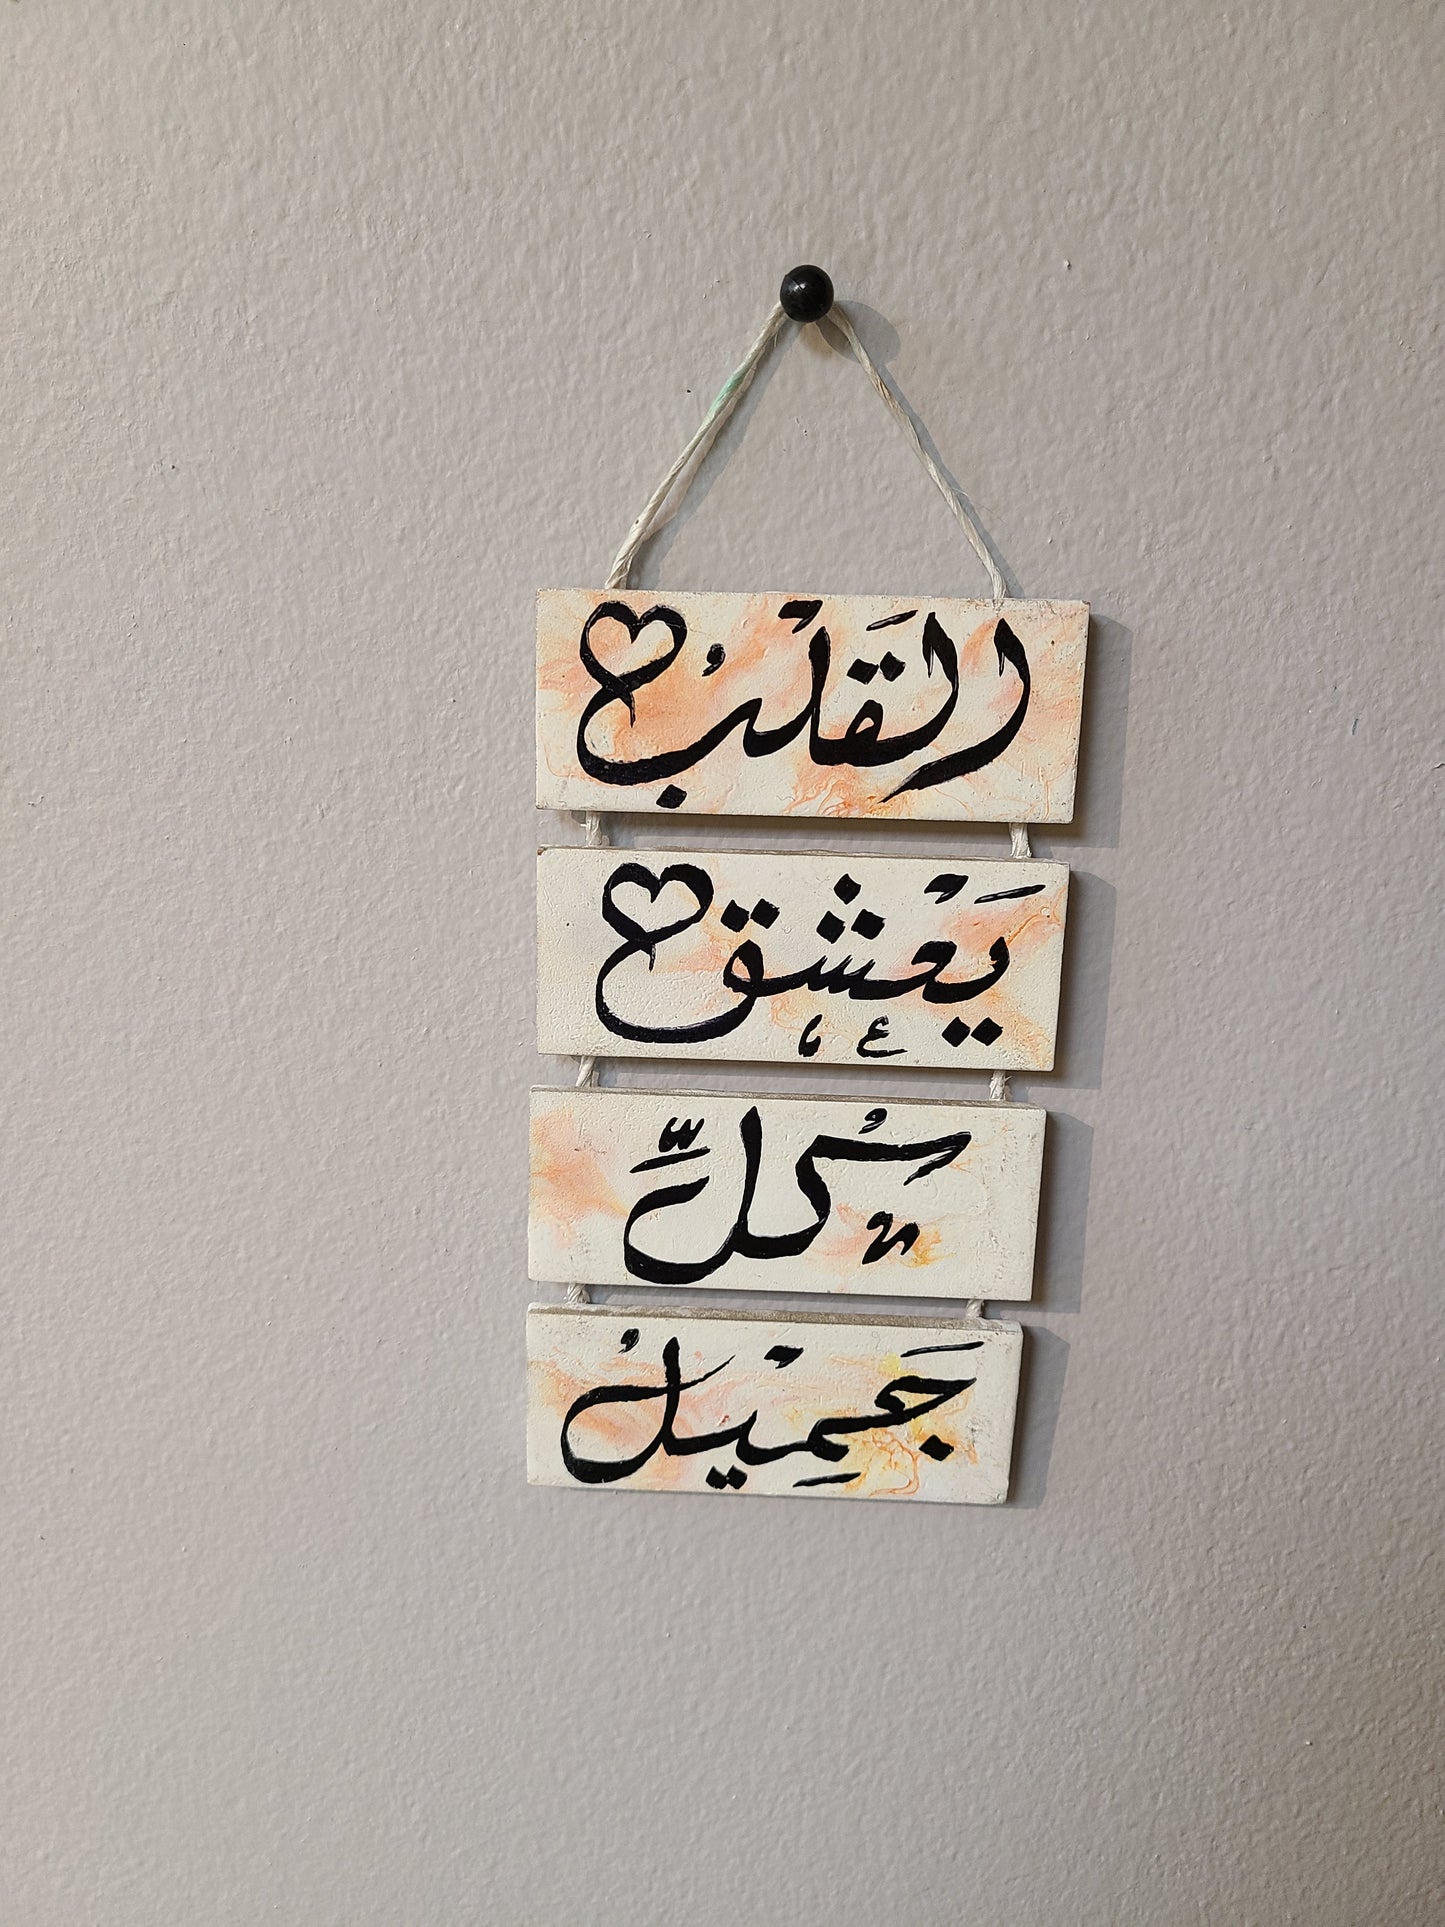 القَلْبُ
يَعْشَق
كُلَّ
جَمِيْلْ